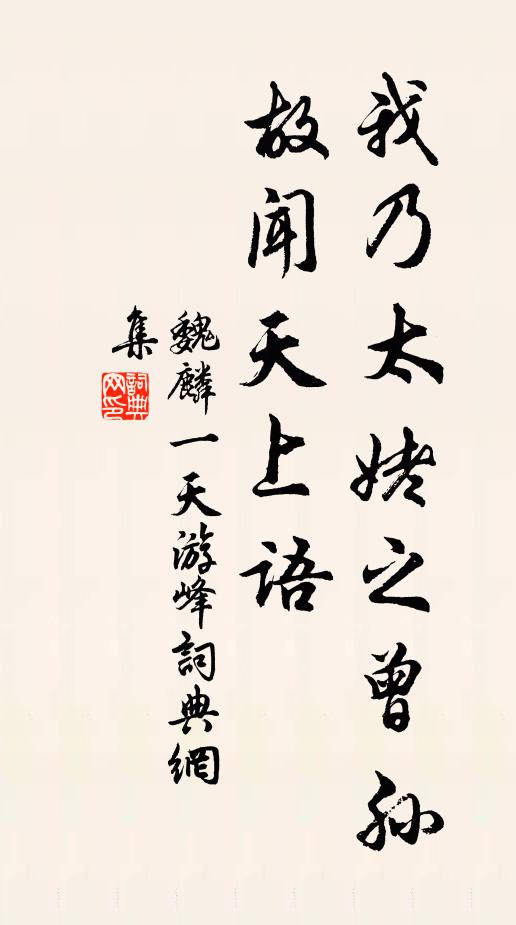 我乃太姥之曾孙
故闻天上语
魏麟一天游峰詞典網
集
詞典网印